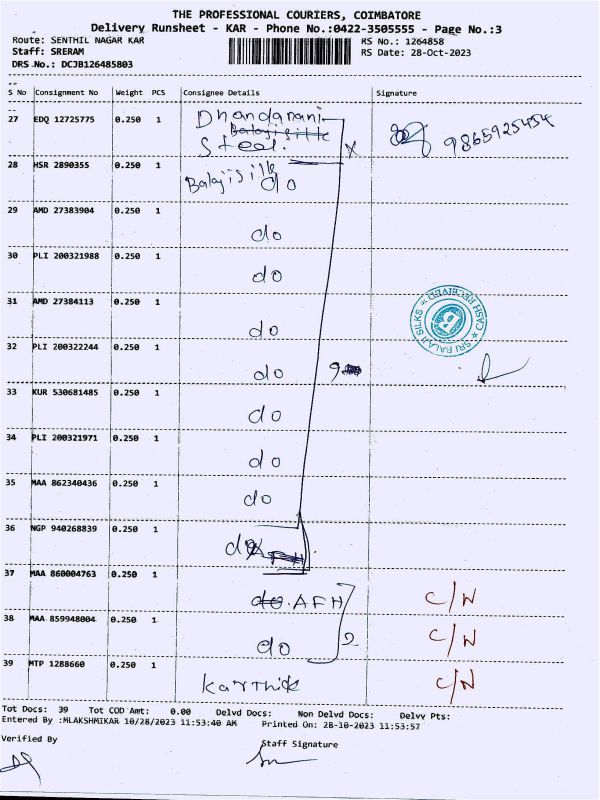 THE PROFESSIONAL COURIERS, COIMBATORE
Delivery Runsheet - KAR - Phone No.:0422-3505555 - Page No.:3
Route: SENTHIL NAGAR KAR
RS No.: 1264858
Staff: SRERAM
RS Date: 28-Oct-2023
DRS No.: DCJB126485803
S No Consignment No Weight PCS Consignee Details Signature
27 EDQ 12725775 0.250 1 Dhandapani
Balaji silk
Steel.
9865925454
28 HSR 2890355 0.250 1 Balaji silk do
29 AMD 27383904 0.250 1 do
30 PLI 200321988 0.250 1 do
31 AMD 27384113 0.250 1 do
CASH RECEIVED ★ SRI BALAJI SILKS ★
32 PLI 200322244 0.250 1 do 9
33 KUR 530681485 0.250 1 do
34 PLI 200321971 0.250 1 do
35 MAA 862340436 0.250 1 do
36 NGP 940268839 0.250 1 do
37 MAA 860004763 0.250 1 do. AFH C/N
38 MAA 859948004 0.250 1 do 2 C/N
39 MTP 1288660 0.250 1 Karthick C/N
Tot Docs: 39 Tot COD Amt: 0.00 Delvd Docs: Non Delvd Docs: Delvy Pts:
Entered By :MLAKSHMIKAR 10/28/2023 11:53:40 AM Printed On: 28-10-2023 11:53:57
Verified By
Staff Signature